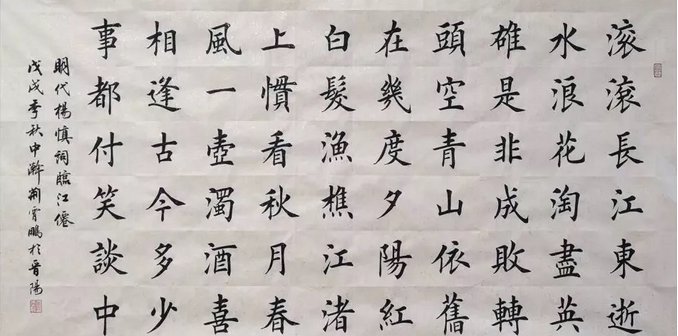 滚滚長江東逝
水浪花淘盡英
雄是非成敗轉
頭空青山依舊
在幾度夕陽紅
白髮漁樵江渚
上慣看秋月春
風一壺濁酒喜
相逢古今多少
事都付笑談中
明代楊慎詞臨江僊
戊戌季秋中澣荊霄鵬於晉陽